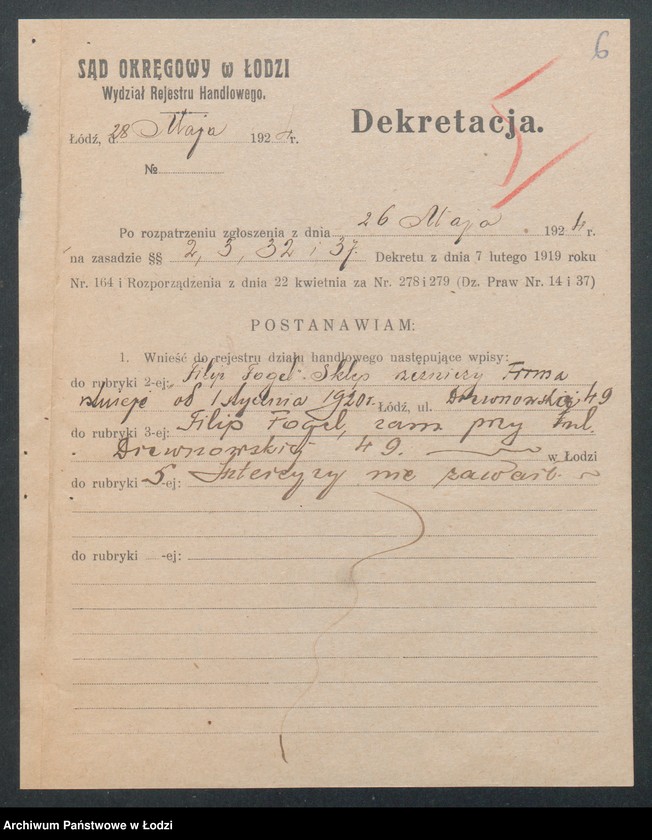 6
SĄD OKRĘGOWY w ŁODZI
Wydział Rejestru Handlowego.
Dekretacja.
Łódź, d. 28 Maja 1924 r.
№
Po rozpatrzeniu zgłoszenia z dnia 26 Maja 1924 r.
na zasadzie §§ 2, 5, 32 i 37. Dekretu z dnia 7 lutego 1919 roku
Nr. 164 i Rozporządzenia z dnia 22 kwietnia za Nr. 278 i 279 (Dz. Praw Nr. 14 i 37)
POSTANAWIAM:
1. Wnieść do rejestru działu handlowego następujące wpisy:
do rubryki 2-ej: Filip Fogel. Sklep rzeźniczy Firma
istnieje od 1 stycznia 1920 r. Łódź, ul. Drewnowskiej 49
do rubryki 3-ej: Filip Fogel, zam przy ul.
Drewnowskiej 49. w Łodzi
do rubryki 5-ej: Intercyzy nie zawarł.
do rubryki -ej:
Archiwum Państwowe w Łodzi